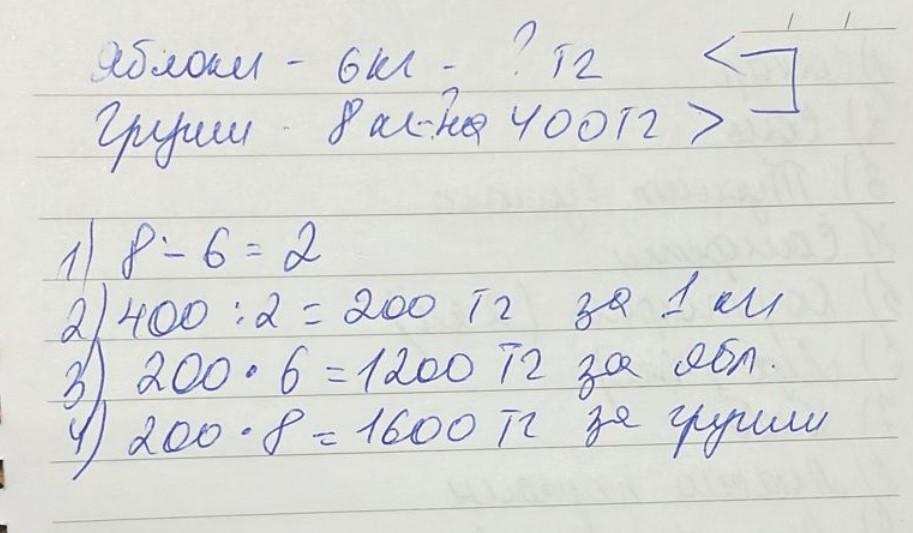 Яблоки - 6кг - ? тг <
Груши - 8 кг-?на 400тг >
1) 8 - 6 = 2
2) 400 : 2 = 200 тг за 1 кг
3) 200 · 6 = 1200 тг за ябл.
4) 200 · 8 = 1600 тг за груши